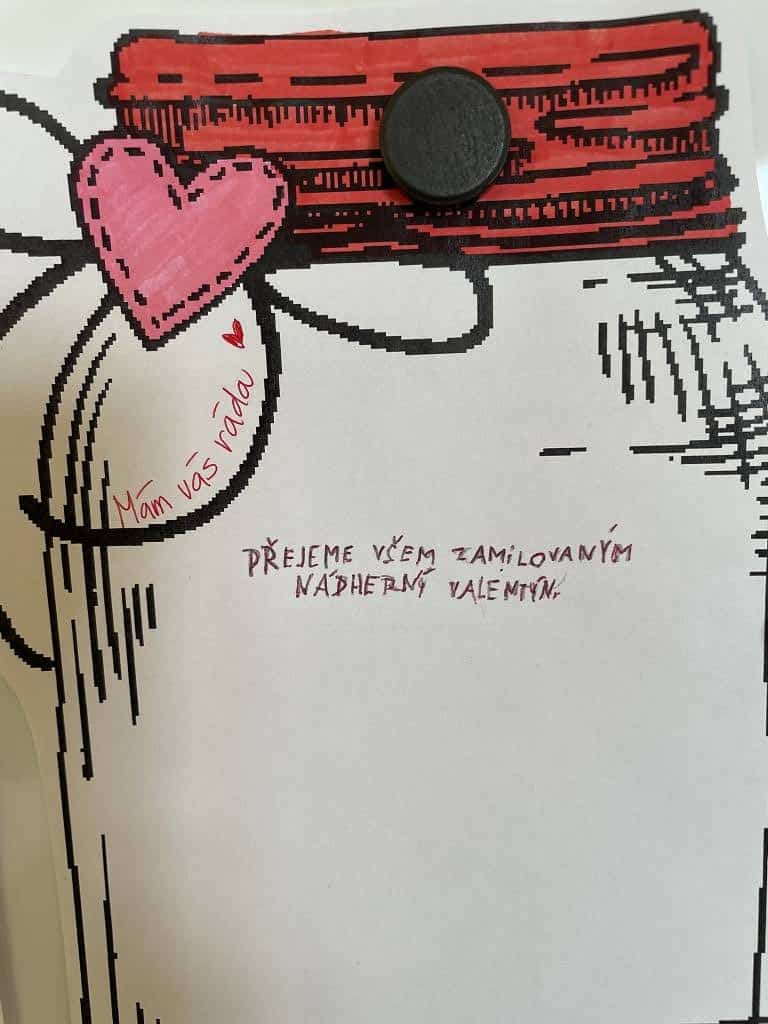 Mám vás ráda
PŘEJEME VŠEM ZAMiLOVANÝM
NÁDHERNÝ VALENTÝN.